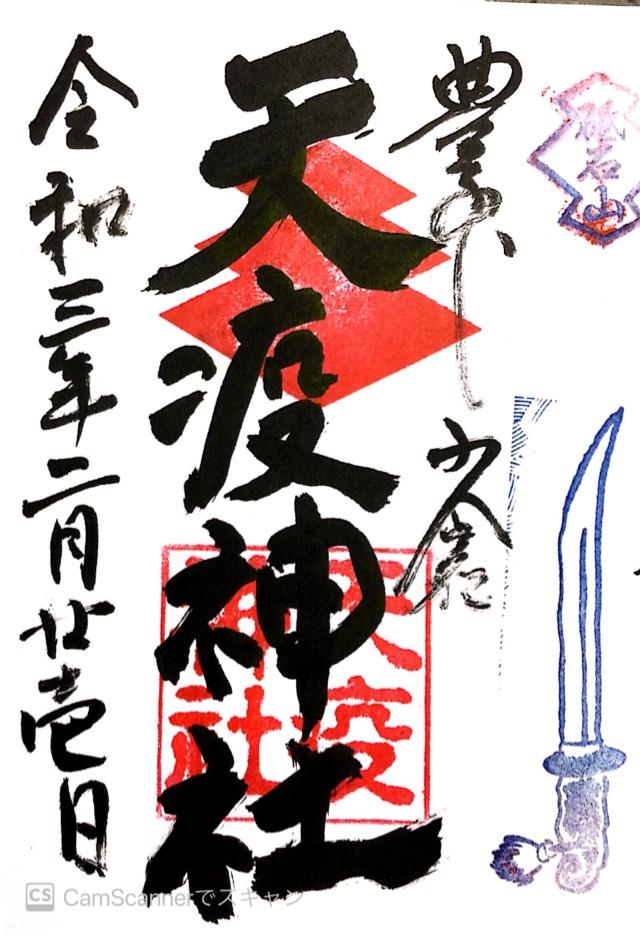 砥石山
天疫神社
天疫
神社
令和三年二月廿壱日
CS CamScannerでスキャン